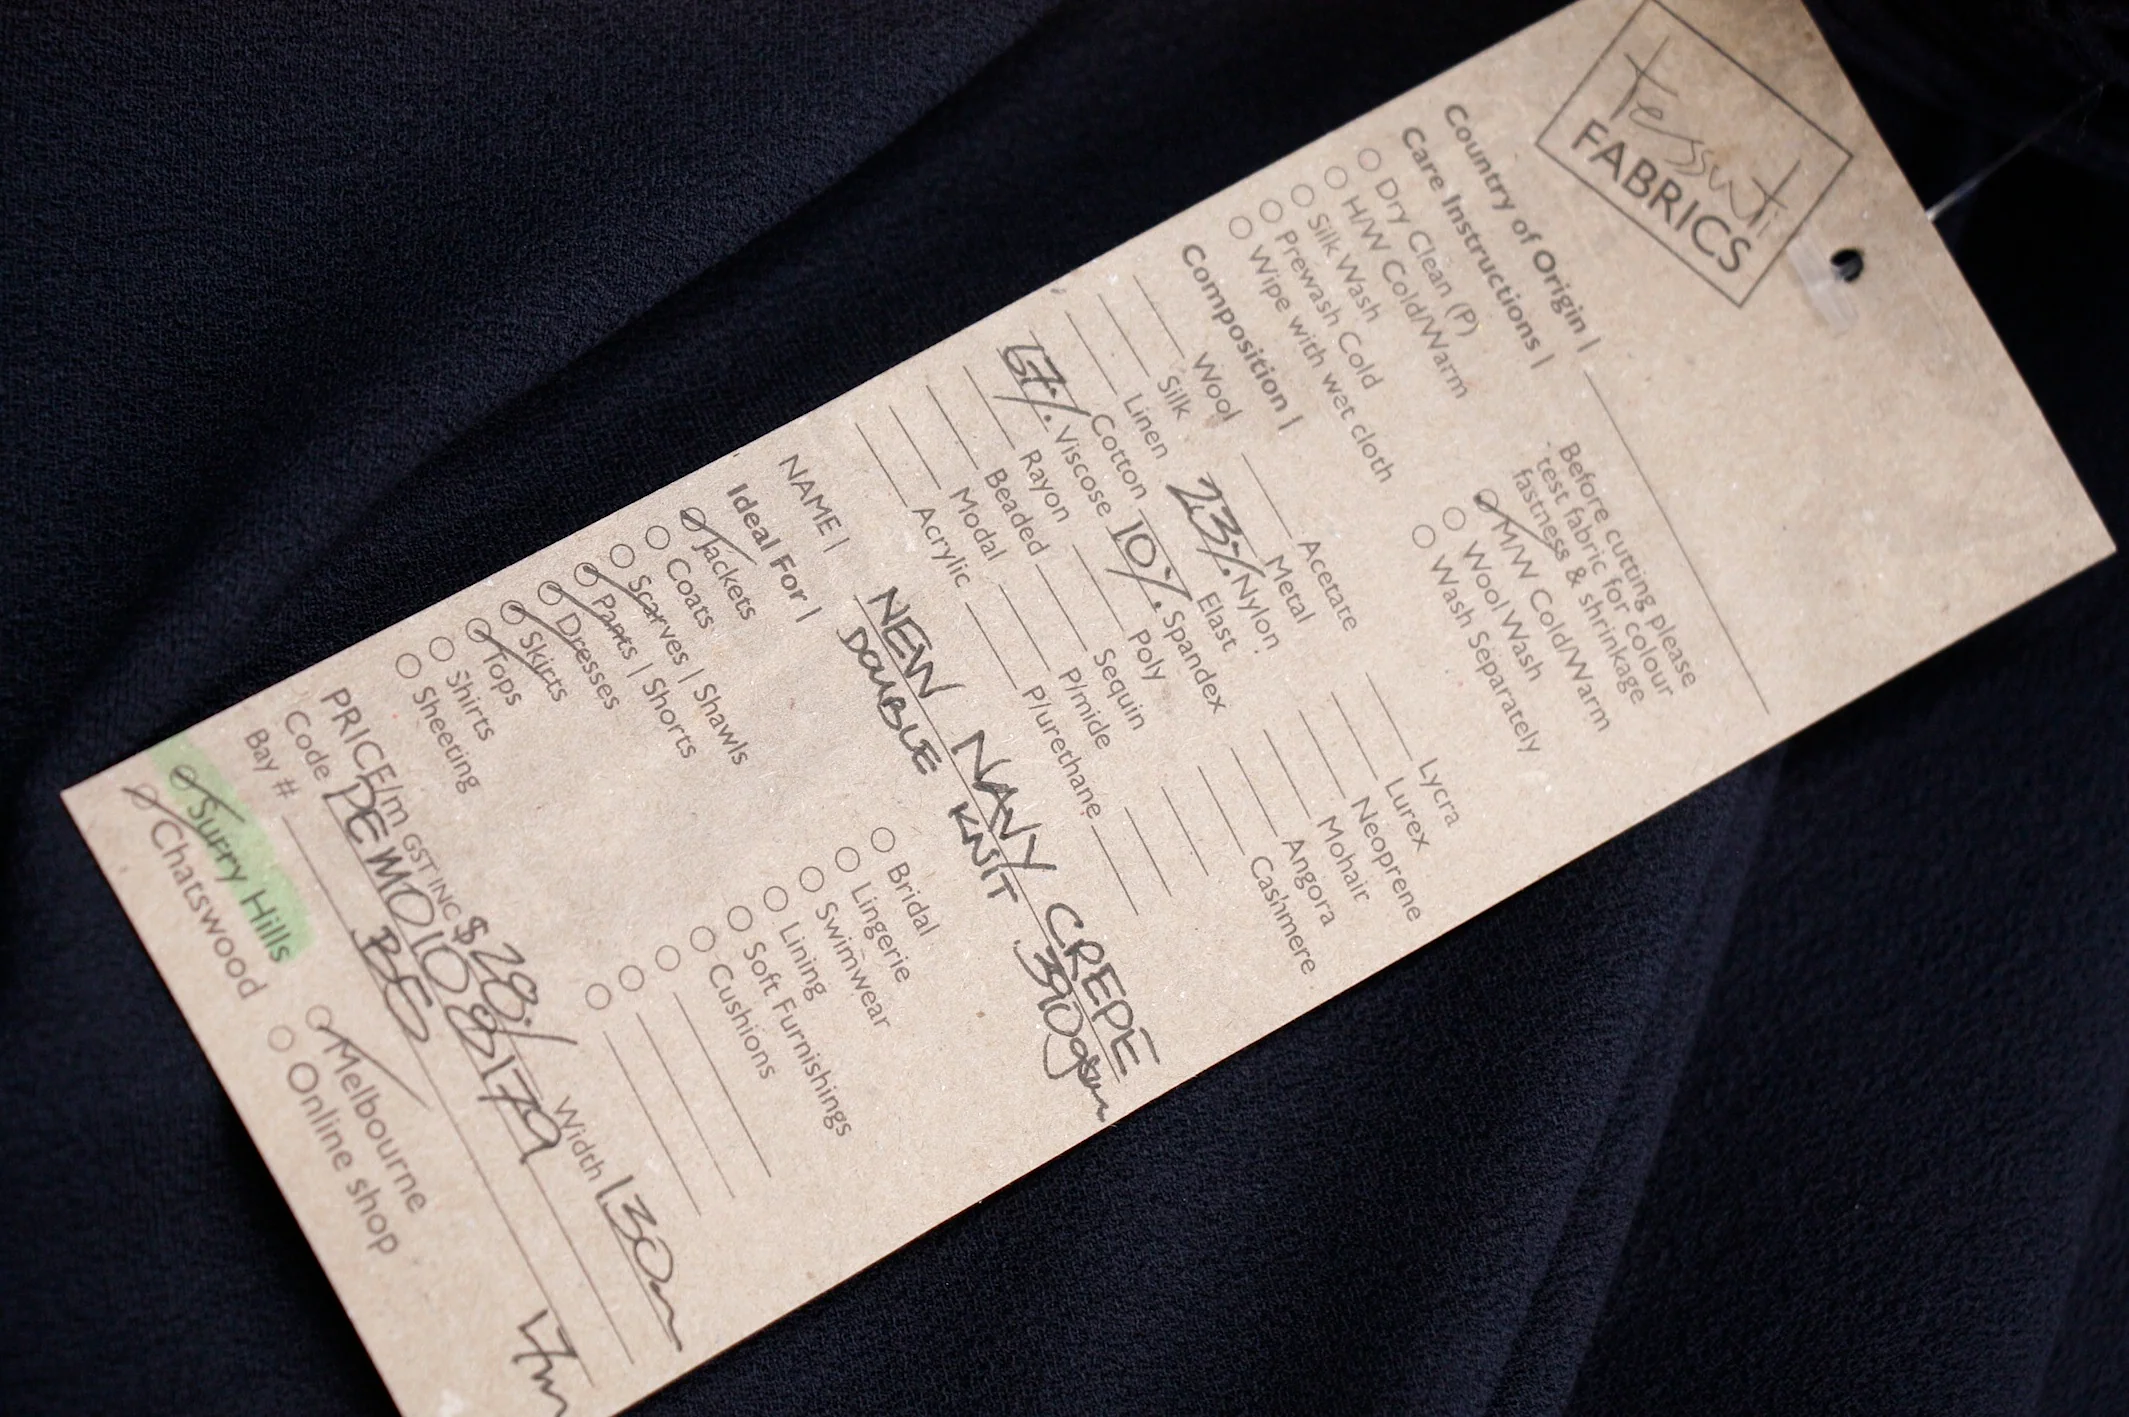 Tessuti
FABRICS
Country of Origin |
Care Instructions |
Dry Clean (P)
H/W Cold/Warm
Silk Wash
Prewash Cold
Wipe with wet cloth
Before cutting please
test fabric for colour
fastness & shrinkage
M/W Cold/Warm
Wool Wash
Wash Separately
Composition |
Wool
Silk
Linen
Cotton
67% Viscose
Rayon
Beaded
Modal
Acrylic
Acetate
Metal
23% Nylon
Elast
10% Spandex
Poly
Sequin
P/mide
P/urethane
Lycra
Lurex
Neoprene
Mohair
Angora
Cashmere
NAME | NEW NAVY CREPE
DOUBLE KNIT 390gsm
Ideal For |
Jackets
Coats
Scarves | Shawls
Pants | Shorts
Dresses
Skirts
Tops
Shirts
Sheeting
Bridal
Lingerie
Swimwear
Lining
Soft Furnishings
Cushions
PRICE/m GST INC $28./ Width 130cm
Code PEM01008179
Bay # BE
Surry Hills
Melbourne
Chatswood
Online shop